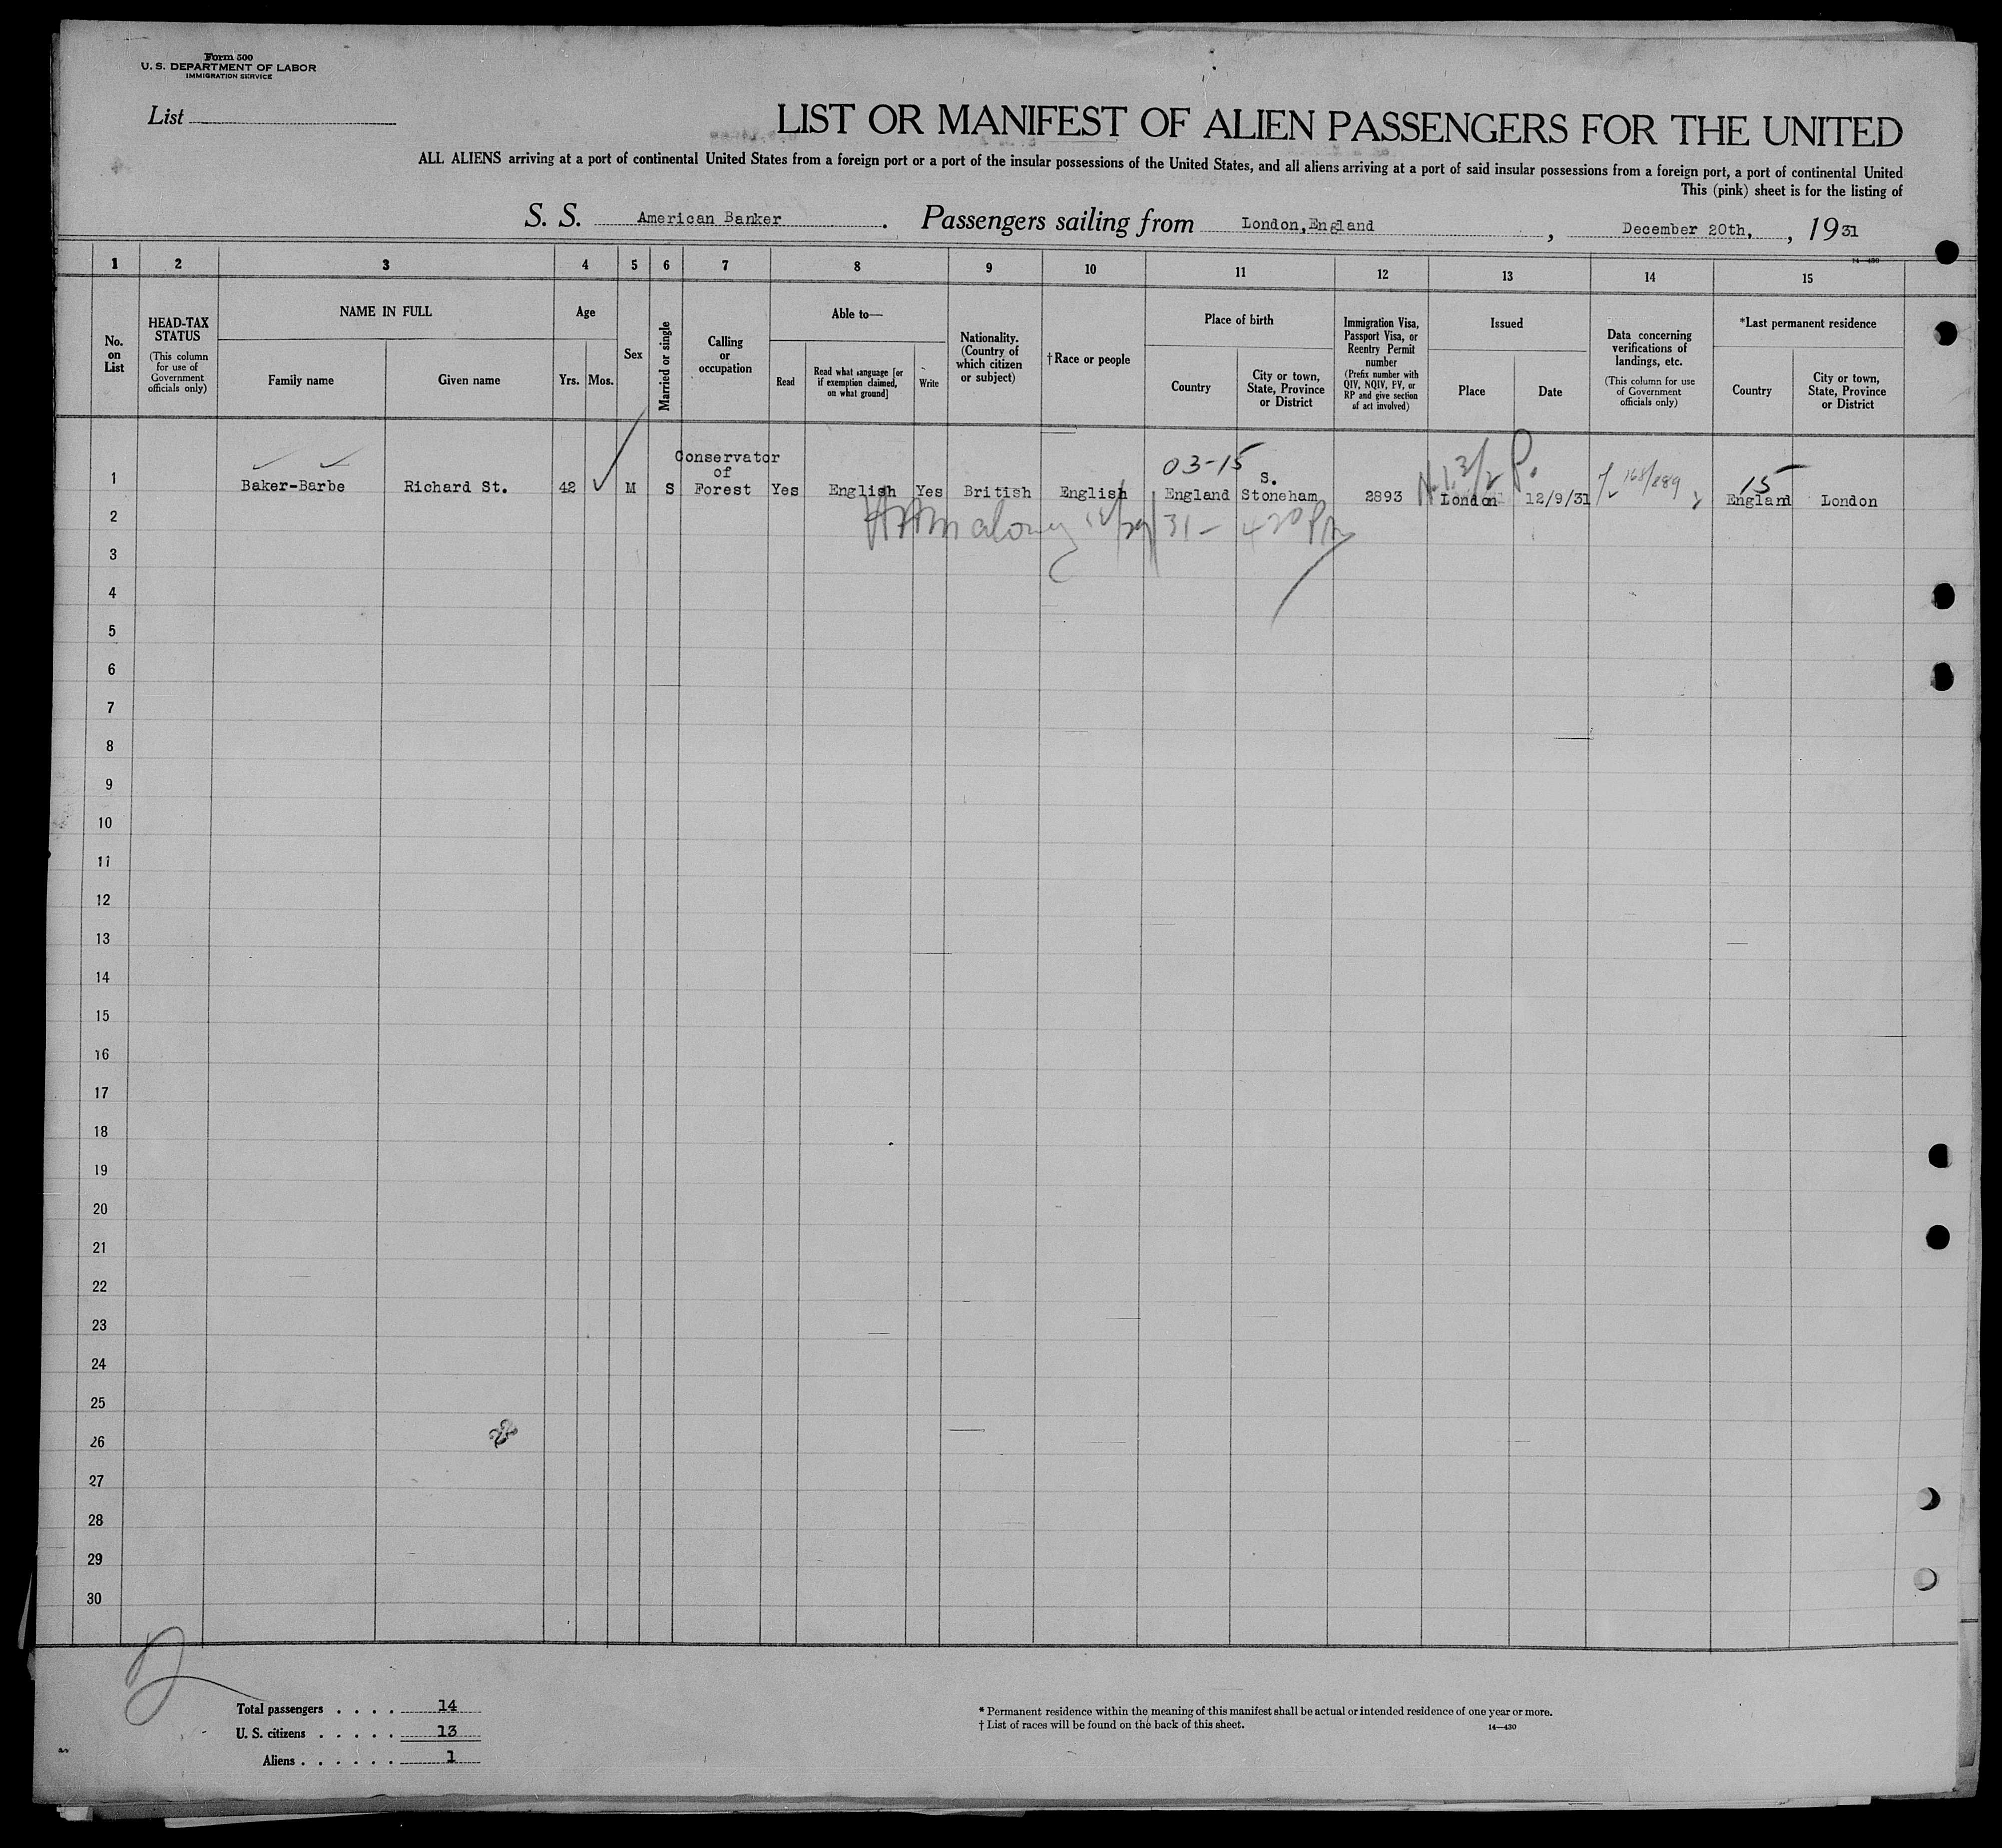 Form 500
U. S. DEPARTMENT OF LABOR
IMMIGRATION SERVICE
List
LIST OR MANIFEST OF ALIEN PASSENGERS FOR THE UNITED
ALL ALIENS arriving at a port of continental United States from a foreign port or a port of the insular possessions of the United States, and all aliens arriving at a port of said insular possessions from a foreign port, a port of continental United
This (pink) sheet is for the listing of
S. S. American Banker. Passengers sailing from London,England, December 20th, , 1931
14—430
1 2 3 4 5 6 7 8 9 10 11 12 13 14 15
No. on List
HEAD-TAX STATUS
(This column for use of Government officials only)
NAME IN FULL
Family name
Given name
Age
Yrs. Mos.
Sex
Married or single
Calling or occupation
Able to—
Read
Read what language [or if exemption claimed, on what ground]
Write
Nationality. (Country of which citizen or subject)
†Race or people
Place of birth
Country
City or town, State, Province or District
Immigration Visa, Passport Visa, or Reentry Permit number
(Prefix number with QIV, NQIV, PV, or RP and give section of act involved)
Issued
Place
Date
Data concerning verifications of landings, etc.
(This column for use of Government officials only)
*Last permanent residence
Country
City or town, State, Province or District
03-15
15
1 Baker-Barbe Richard St. 42 M S Conservator of Forest Yes English Yes British English England S. Stoneham 2893 London 12/9/31 168/289 England London
2
3
4
5
6
7
8
9
10
11
12
13
14
15
16
17
18
19
20
21
22
23
24
25
26
27
28
29
30
Total passengers . . . . 14
U. S. citizens . . . . . 13
Aliens . . . . . . 1
* Permanent residence within the meaning of this manifest shall be actual or intended residence of one year or more.
† List of races will be found on the back of this sheet.
14—430